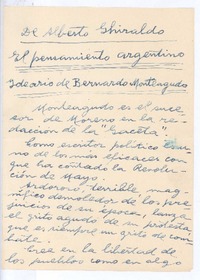 De Alberto Ghiraldo
El pensamiento argentino
Ideario de Bernardo Monteagudo
Monteagudo es el suce-
sor de Moreno en la re-
dacción de la "Gaceta".
Como escritor político es u-
no de los más eficaces con
que ha contado la Revolu-
ción de Mayo.
Ardoroso, terrible, mag-
nífico demoledor de los pre-
juicios de su época, lanza
el grito agudo de su protesta,
que es siempre un grito de com-
bate.
Cree en la libertad de
los pueblos como en el g